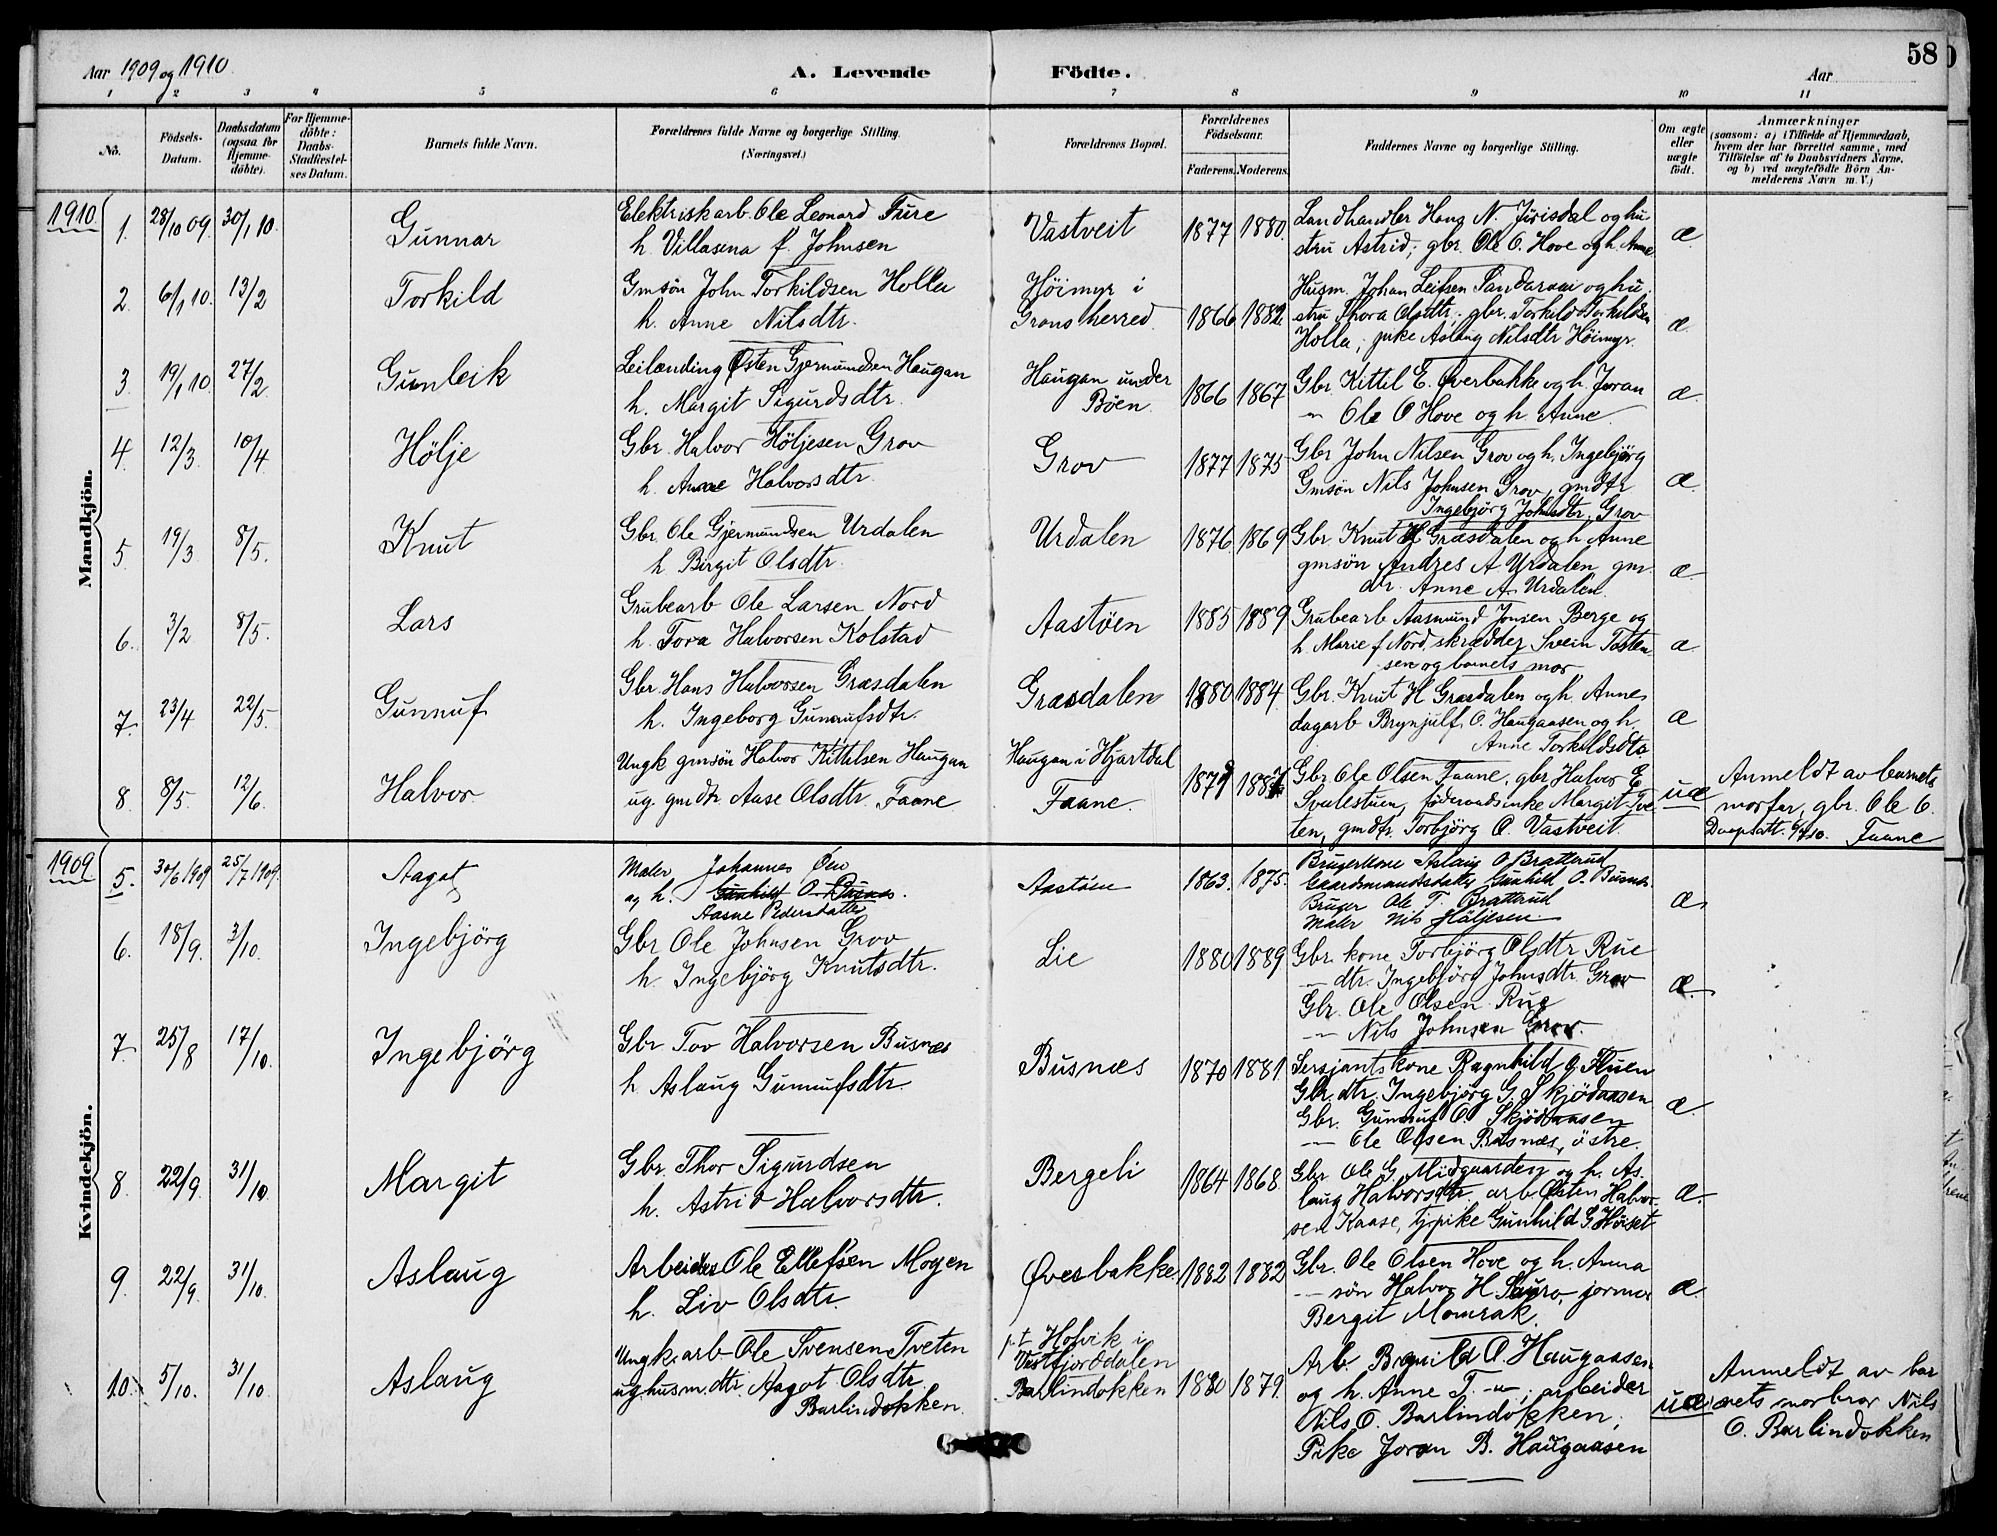 58
Aar 1909 og 1910.
A. Levende Födte.
Aar
1 2 3 4 5 6 7 8 9 10 11
No.
Födsels-Datum.
Daabsdatum (ogsaa for Hjemme-döbte).
For Hjemme-döbte: Daabs-Stadfæstel-ses Datum.
Barnets fulde Navn.
Forældrenes fulde Navne og borgerlige Stilling.
(Næringsvei.)
Forældrenes Bopæl.
Forældrenes Födselsaar.
Faderens. Moderens.
Faddernes Navne og borgerlige Stilling.
Om ægte eller uægte födt.
Anmærkninger
(saasom: a) i Tilfælde af Hjemmedaab,
hvem der har forrettet samme, med
Tilföielse af to Daabsvidners Navne,
og b) ved uægtefödte Börn An-
melderens Navn m. V.)
Mandkjön.
1910
1. 28/10 09. 30/1 10. Gunnar
Elektriskarb. Ole Leonard Fure
h. Villasena f. Johnsen
Vastveit 1877 1880.
Landhandler Hans N. Jörisdal og hu-
stru Astrid; gbr. Ole O. Hove og h. Anne
æ
2. 6/1 10. 13/2 Torkild
Gmsön John Torkildsen Holla
h. Anne Nilsdtr.
Höimyr i
Gransherred 1866 1882
Husm. Johan Leifsen Sandaraai og hu
stru Thora Olsdtr.; gbr. Torkild Torkildsen
Holla; pike Aslaug Nilsdtr Höimyr.
æ
3. 19/1 10. 27/2 Gunleik
Leilænding Østen Gjermundsen Haugan
h. Margit Sigurdsdtr.
Haugan under
Böen 1866 1867
Gbr. Kittil E. Øverbakke og h. Joran
" Ole O Hove og h Anne
æ
4. 12/3 10/4 Hölje
Gbr. Halvor Höljesen Grov
h. Anne Halvorsdtr.
Grov 1877 1875
Gbr John Nilsen Grov og h. Ingebjörg
Gmsön Nils Johnsen Grov, gmdtr
Ingebjörg Johnsdtr. Grov
æ
5 19/3 8/5. Knut
Gbr. Ole Gjermundsen Urdalen
h Birgit Olsdtr.
Urdalen 1876 1869
Gbr Knut H Græsdalen og h Anne
gmsön Andres A Urdalen gm.
dtr. Anne A. Urdalen
æ
6. 3/2 8/5. Lars
Grubearb Ole Larsen Nord
h. Tora Halvorsen Kolstad
Aastöen 1885 1889
Grubearb Aasmund Jonsen Berge og
h. Marie f Nord, skrædder Svein Tosten-
sen og barnets mor
æ
7. 23/4 22/5. Gunnuf
Gbr. Hans Halvorsen Græsdalen
h. Ingeborg Gunnufsdtr.
Græsdalen 1880 1884
Gbr. Knut H Græsdalen og h. Anne
dagarb Brynjulf O. Haugaasen og h.
Anne Torkildsdtr
æ
8. 8/5. 12/6. Halvor
Ungk gmsön Halvor Kittilsen Haugan
ug. gmdtr Aase Olsdtr. Faane
Haugan i Hjartdal
Faane. 1887
Gbr Ole Olsen Faane, gbr Halvor E
Svalestuen, föderaadsenke Margit Tve-
ten, gmdtr. Torbjörg O. Vastveit
uæ
Anmeldt av barnets
morfar, gbr. Ole O.
Faane
Kvindekjön.
1909
5. 30/6 1909 25/7 1909. Aagot
Maler Johannes Öen
og h. Gunhild O. Busnes.
Aasne Pedersdatter
Aastöen 1863. 1875.
Brugerkone Aslaug O Brattrud
Gaardmandsdatter Gunhild O. Busnæs
Bruger Ole T. Brattrud
Maler Nils Höljesen
æ
6. 18/9. 3/10. Ingebjörg
Gbr Ole Johnsen Grov
h. Ingebjörg Knutsdtr.
Lie 1880 1889
Gbr. kone Torbjörg Olsdtr Rue
" dtr. Ingebjörg Johnsdtr Grov
Gbr. Ole Olsen Rue
" Nils Johnsen Grov.
æ
7 25/8 17/10. Ingebjörg
Gbr Tov Halvorsen Busnæs
h Aslaug Gunnufsdtr.
Busnæs 1870 1881
Sersjantskone Ragnhild O. Fluen
Gbr. dtr. Ingebjörg G. Skjödaasen
Gbr. Gunnuf O. Skjödaasen
" Ole Olsen Busnæs, östre.
æ
8. 22/9. 31/10 Margit
Gbr. Thor Sigurdsen
h. Astrid Halvorsdtr.
Bergeli 1864 1868
Gbr Ole G. Midgaarden og h. As-
laug Halvorsdtr. arb. Østen Halvor-
sen Kaase, tjpike Gunhild G. Höiset
æ.
9. 22/9. 31/10. Aslaug
Arbeider Ole Ellefsen Mogen
h. Liv Olsdtr.
Øverbakke 1882 1882
Gbr. Ole Olsen Hove og h. Anna
" sön Halvor H Sauro, jormor
Bergit Momrak.
æ
10. 5/10. 31/10. Aslaug
Ungk. arb. Ole Svensen Tveten
ug. husm. dtr. Aagot Olsdtr
Barlindokken.
p.t. Holvik i
Vestfjorddalen
Barlindokken 1880 1879.
Arb. O. Haugaasen
og h. Anne T. " ; arbeider
Nils O. Barlindokken;
Pike Joran B. Haugaasen
uæ
Anmeldt av bar
nets morbror Nils
O. Barlindokken